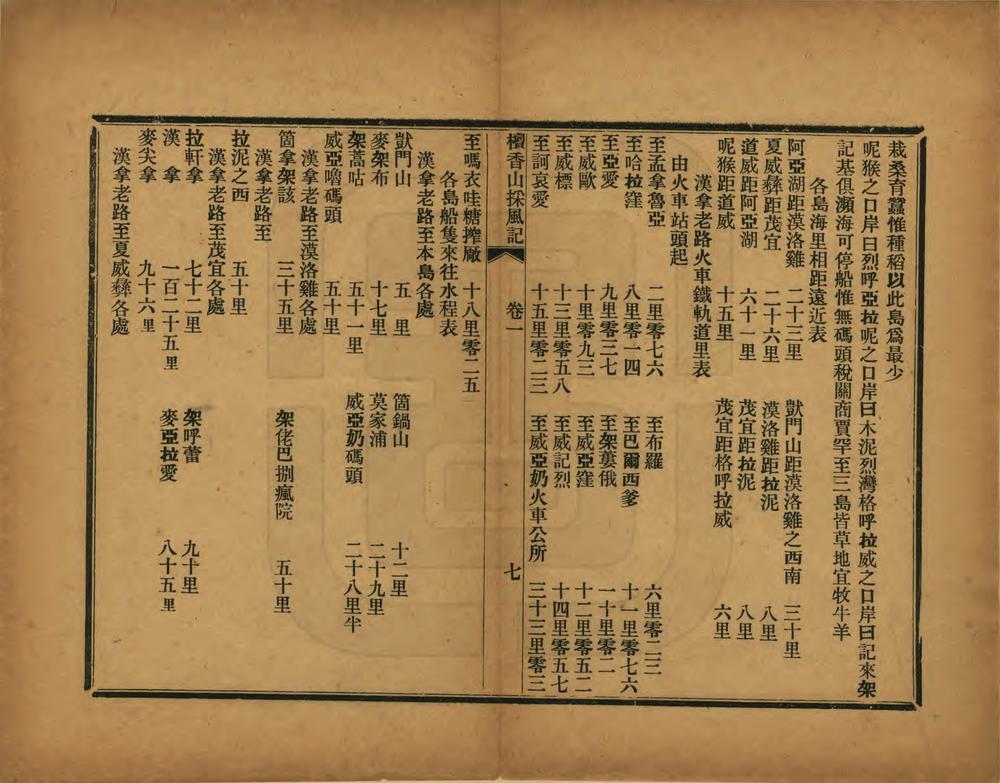 栽桑育蠶惟種稻以此島爲最少
呢猴之口岸曰烈呼亞拉呢之口岸曰木泥烈灣格呼拉威之口岸曰記來架
記基俱瀕海可停船惟無碼頭稅關商賈罕至三島皆草地宜牧牛羊
各島海里相距遠近表
阿亞湖距漠洛雞　二十三里　獃門山距漠洛雞之西南　三十里
夏威彝距茂宜　二十六里　漠洛雞距拉泥　八里
道威距阿亞湖　六十一里　茂宜距拉泥　八里
呢猴距道威　十五里　茂宜距格呼拉威　六里
漢拿老路火車鐵軌道里表
由火車站頭起
至孟拿魯亞　二里零七六　至布羅　六里零二三
至哈拉窪　八里零一四　至巴爾西爹　十一里零七六
至亞愛　九里零三七　至架蔞俄　一十里零二
至威歐　十里零九三　至威亞窪　十二里零五二
至威標　十三里零五八　至威記烈　十四里零五七
至訶哀愛　十五里零二三　至威亞奶火車公所　三十三里零三
檀香山採風記　卷一　七
至嗎衣哇糖搾廠　十八里零二五
各島船隻來往水程表
漢拿老路至本島各處
獃門山　五里　箇鍋山　十二里
麥架布　十七里　莫家浦　二十九里
架蒿咕　五十一里　威亞奶碼頭　二十八里半
威亞嚕碼頭　五十里
漢拿老路至漠洛雞各處
箇拿架該　三十五里　架佬巴捌瘋院　五十里
漢拿老路至
拉泥之西　五十里
漢拿老路至茂宜各處
拉軒拿　七十二里　架呼蕾　九十里
漢拿　一百二十五里　麥亞拉愛　八十五里
麥尖拿　九十六里
漢拿老路至夏威彝各處